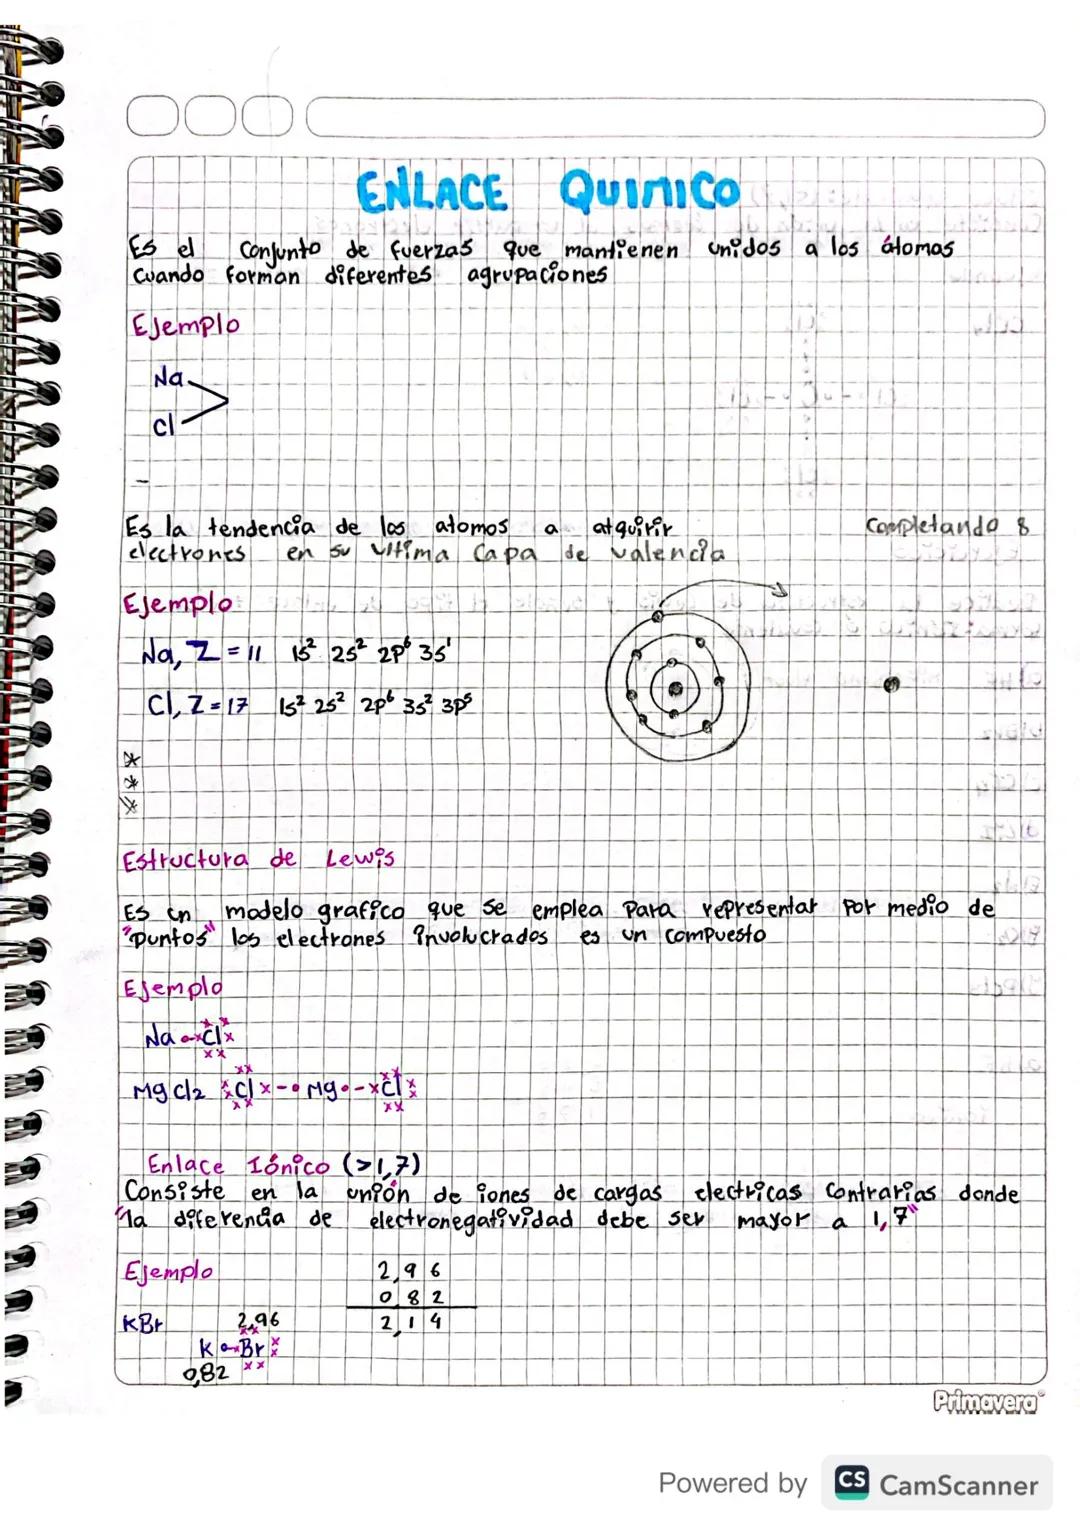 ENLACE QUIMICO
Es el Conjunto de fuerzas que mantienen unidos a los átomas
Cuando forman diferentes agrupaciones
Ejemplo
Na
Cl
Es la tendencia de los atomos a atquirir Completando 8
electrones en su ultima Capa de valencia
Ejemplo
Na, Z = 11 1s² 2s² 2p⁶ 3s¹
Cl, Z = 17 1s² 2s² 2p⁶ 3s² 3p⁵
Estructura de Lewis
Es un modelo grafico que se emplea Para representar Por medio de
"puntos" los electrones involucrados es un compuesto
Ejemplo
Na Cl
Mg Cl2 Cl x-•Mg•-x Cl
Enlace Iónico (>1,7)
Consiste en la unión de iones de cargas electricas Contrarias donde
"la diferencia de electronegatividad debe ser mayor a 1,7"
Ejemplo 2,96
0 82
KBr 2,96 2,14
K Br
0,82
Primavera
Powered by CS CamScanner